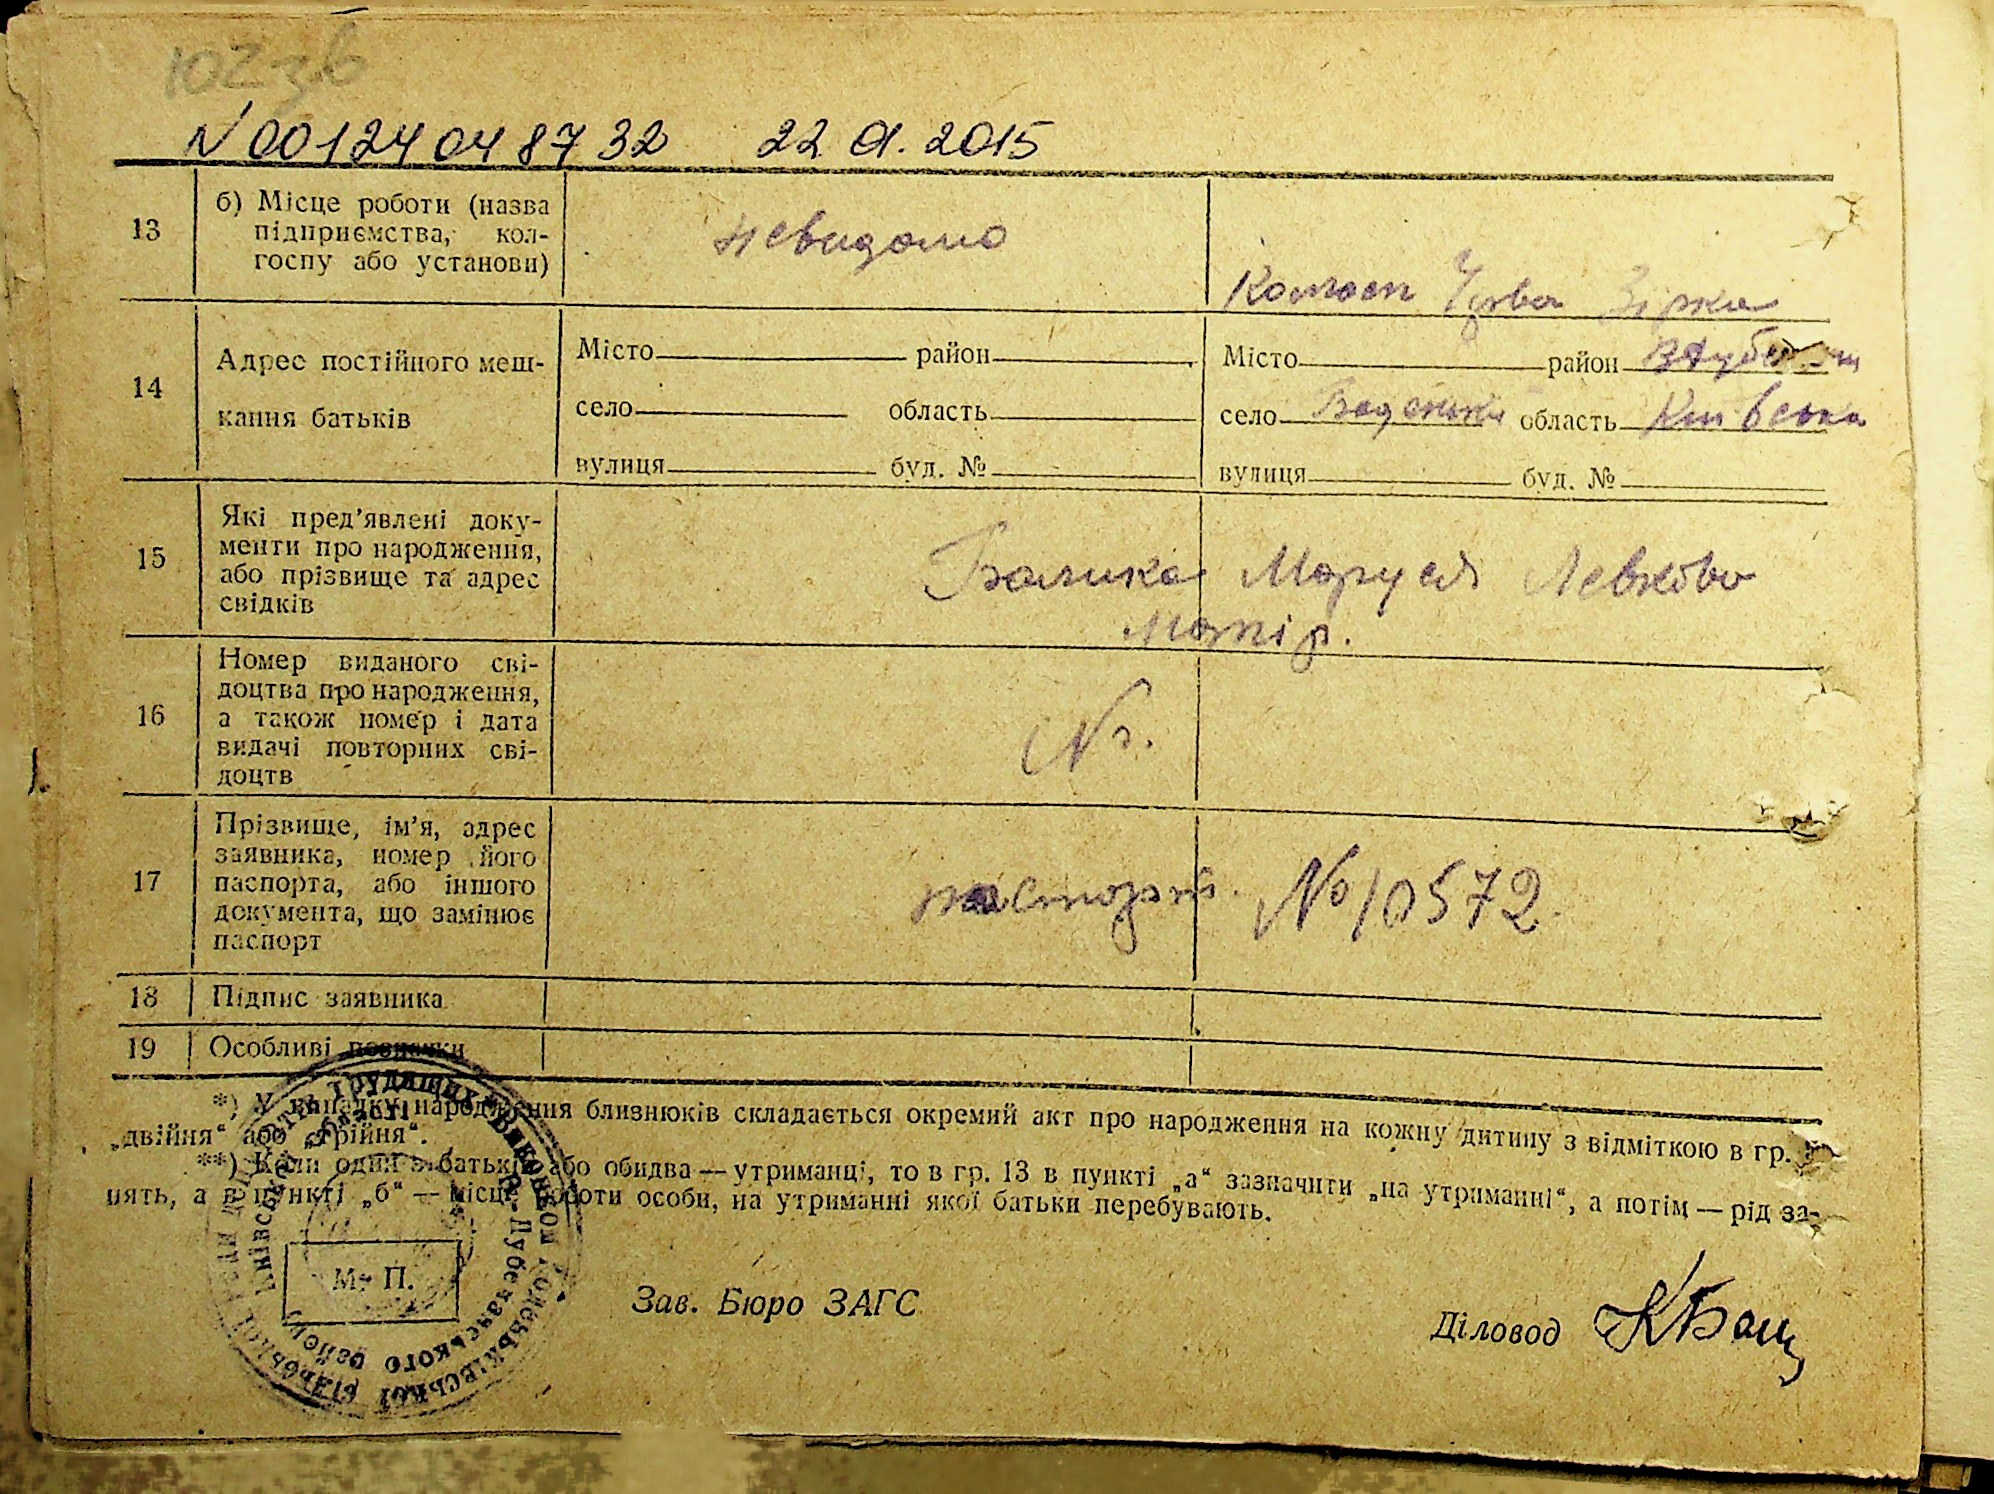 102зв
N 00124048732 22.01.2015
13
б) Місце роботи (назва
підприємства, кол-
госпу або установи)
невидомо
Червона Зірка
14
Адрес постійного меш-
кання батьків
Місто район
село область
вулиця буд. №
Місто район
село область Київська
вулиця буд. №
15
Які пред’явлені доку-
менти про народження,
або прізвище та адрес
свідків
Маруся Левкова
матір.
16
Номер виданого сві-
доцтва про народження,
а також номер і дата
видачі повторних сві-
доцтв
№.
17
Прізвище, ім’я, адрес
заявника, номер його
паспорта, або іншого
документа, що замінює
паспорт
паспорт. № 10572.
18 Підпис заявника
19 Особливі позначки
*) У випадку народження близнюків складається окремий акт про народження на кожну дитину з відміткою в гр.
„двійня“ або „трійня“.
**) Коли один з батьків або обидва — утриманці, то в гр. 13 в пункті „а“ зазначити „на утриманні“, а потім — рід за-
нять, а в пункті „б“ — місце роботи особи, на утриманні якої батьки перебувають.
М. П.
Зав. Бюро ЗАГС
Діловод